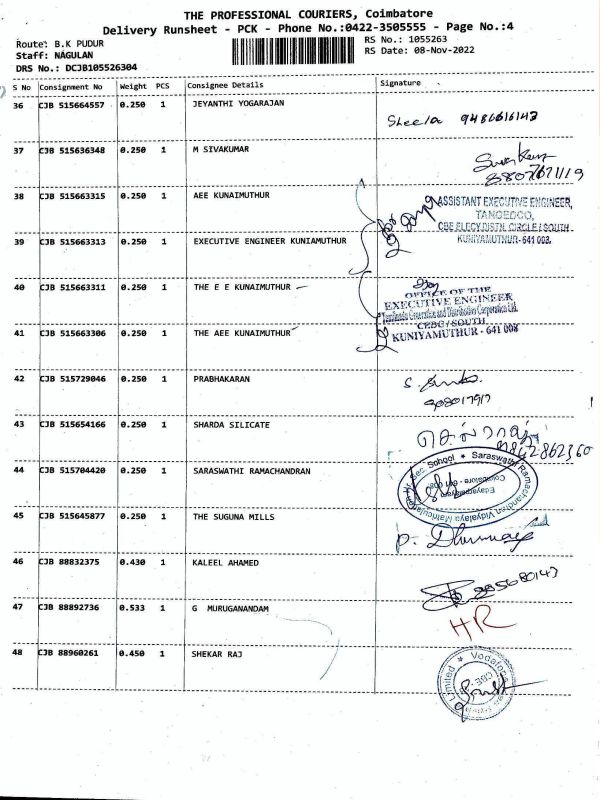 THE PROFESSIONAL COURIERS, Coimbatore
Delivery Runsheet - PCK - Phone No.:0422-3505555 - Page No.:4
Route: B.K PUDUR
RS No.: 1055263
Staff: NAGULAN
RS Date: 08-Nov-2022
DRS No.: DCJB105526304
S No Consignment No Weight PCS Consignee Details Signature
36 CJB 515664557 0.250 1 JEYANTHI YOGARAJAN
Sheela 9486616142
37 CJB 515636348 0.250 1 M SIVAKUMAR
38 CJB 515663315 0.250 1 AEE KUNAIMUTHUR
ASSISTANT EXECUTIVE ENGINEER,
TANGEDCO,
CBE ELECY.DISTN. CIRCLE / SOUTH
KUNIYAMUTHUR-641 008.
39 CJB 515663313 0.250 1 EXECUTIVE ENGINEER KUNIAMUTHUR
40 CJB 515663311 0.250 1 THE E E KUNAIMUTHUR
OFFICE OF THE
EXECUTIVE ENGINEER
Tamilnadu Generation and Distribution Corporation Ltd.
CEDC / SOUTH,
KUNIYAMUTHUR - 641 008
41 CJB 515663306 0.250 1 THE AEE KUNAIMUTHUR
42 CJB 515729046 0.250 1 PRABHAKARAN
43 CJB 515654166 0.250 1 SHARDA SILICATE
9842862360
44 CJB 515704420 0.250 1 SARASWATHI RAMACHANDRAN
Saraswathi Ramachandran Vidyalaya Matriculation Hr. Sec. School
Edayarpalayam
Coimbatore - 641 008
45 CJB 515645877 0.250 1 THE SUGUNA MILLS
46 CJB 88832375 0.430 1 KALEEL AHAMED
47 CJB 88892736 0.533 1 G MURUGANANDAM
HR
48 CJB 88960261 0.450 1 SHEKAR RAJ
Limited
CBE